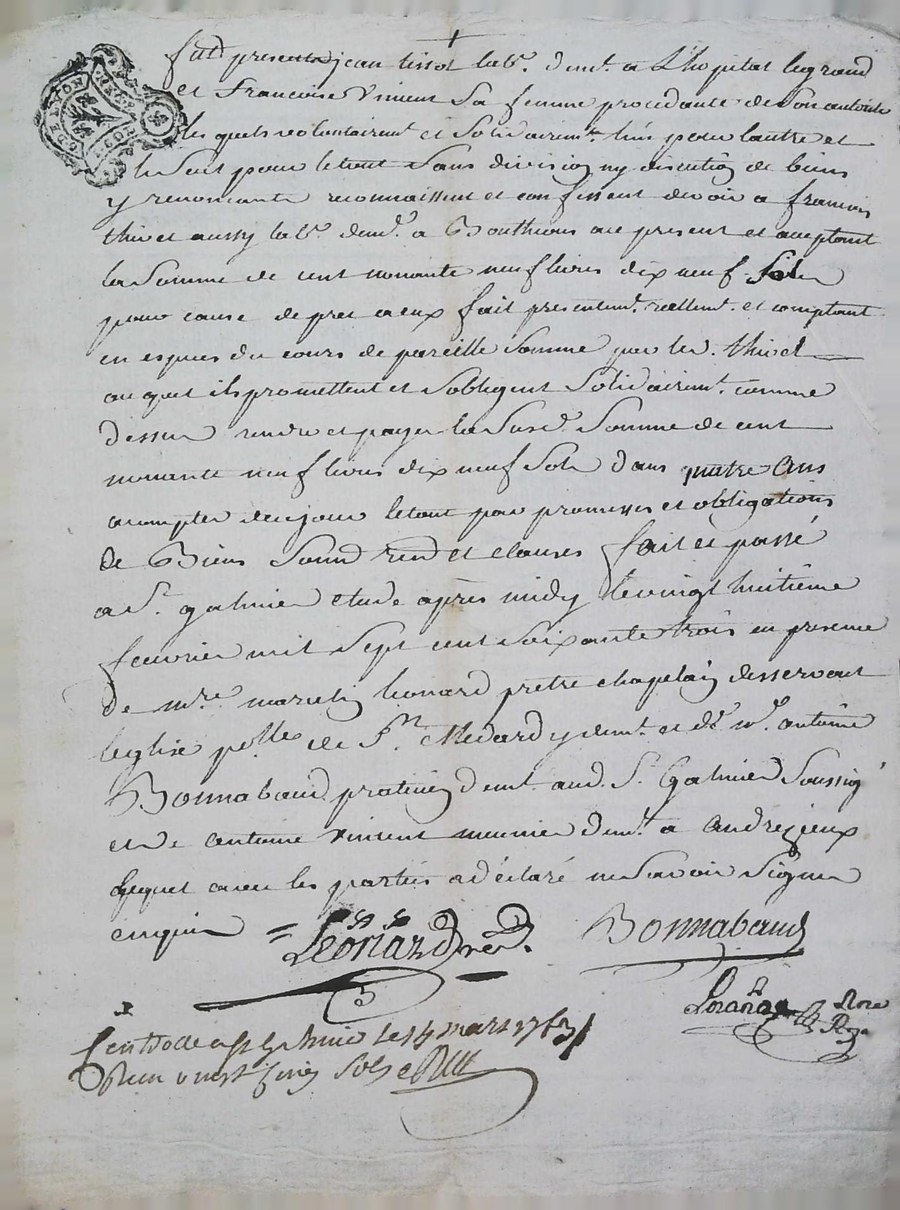 fut present jean tissot labr. demt. a L'hopital legrand
et Francoise Vincent Sa femme procedante de Son autorité
les quels volontairemt. et Solidairemt. L'un pour lautre et
un Seul pour letout Sans division ny discution de biens
y renoncants reconnaissent et confessent devoir a francois
thivet aussy labr. demt. a Bouthéons ace present et aceptant
la Somme de cent nonante neuf livres dix neuf Sols
pour cause de pret a eux fait presentemt. réellemt. et comptant
en espèces du cours de pareille Somme par led. thivet
auquel ils promettent et Sobligent Solidairemt. comme
dessus rendre et payer la Susd. Somme de cent
nonante neuf livres dix neuf Sols dans quatre ans
acompter de ce jour letout par promesses et obligations
de Biens Soumd. rend et clauses fait et passé
a St. galmier etude après midy le vingt huitième
feuvrier mil Sept cent Soixante trois en presence
de mre. marcelin Léonard prètre chapelain desservant
leglise polle de St. Médard y demt. et de Mr. antoine
Bonnabaud praticien demt. aud. St. Galmier Soussigé
et de antoine Vincent meunier demt. a andrezieux
Lequel avec les parties a déclaré ne Savoir Signer
enquis = Léonard Bonnabaud
nore
Ro
a St galmier le 14 mars 1763
cinq Sols